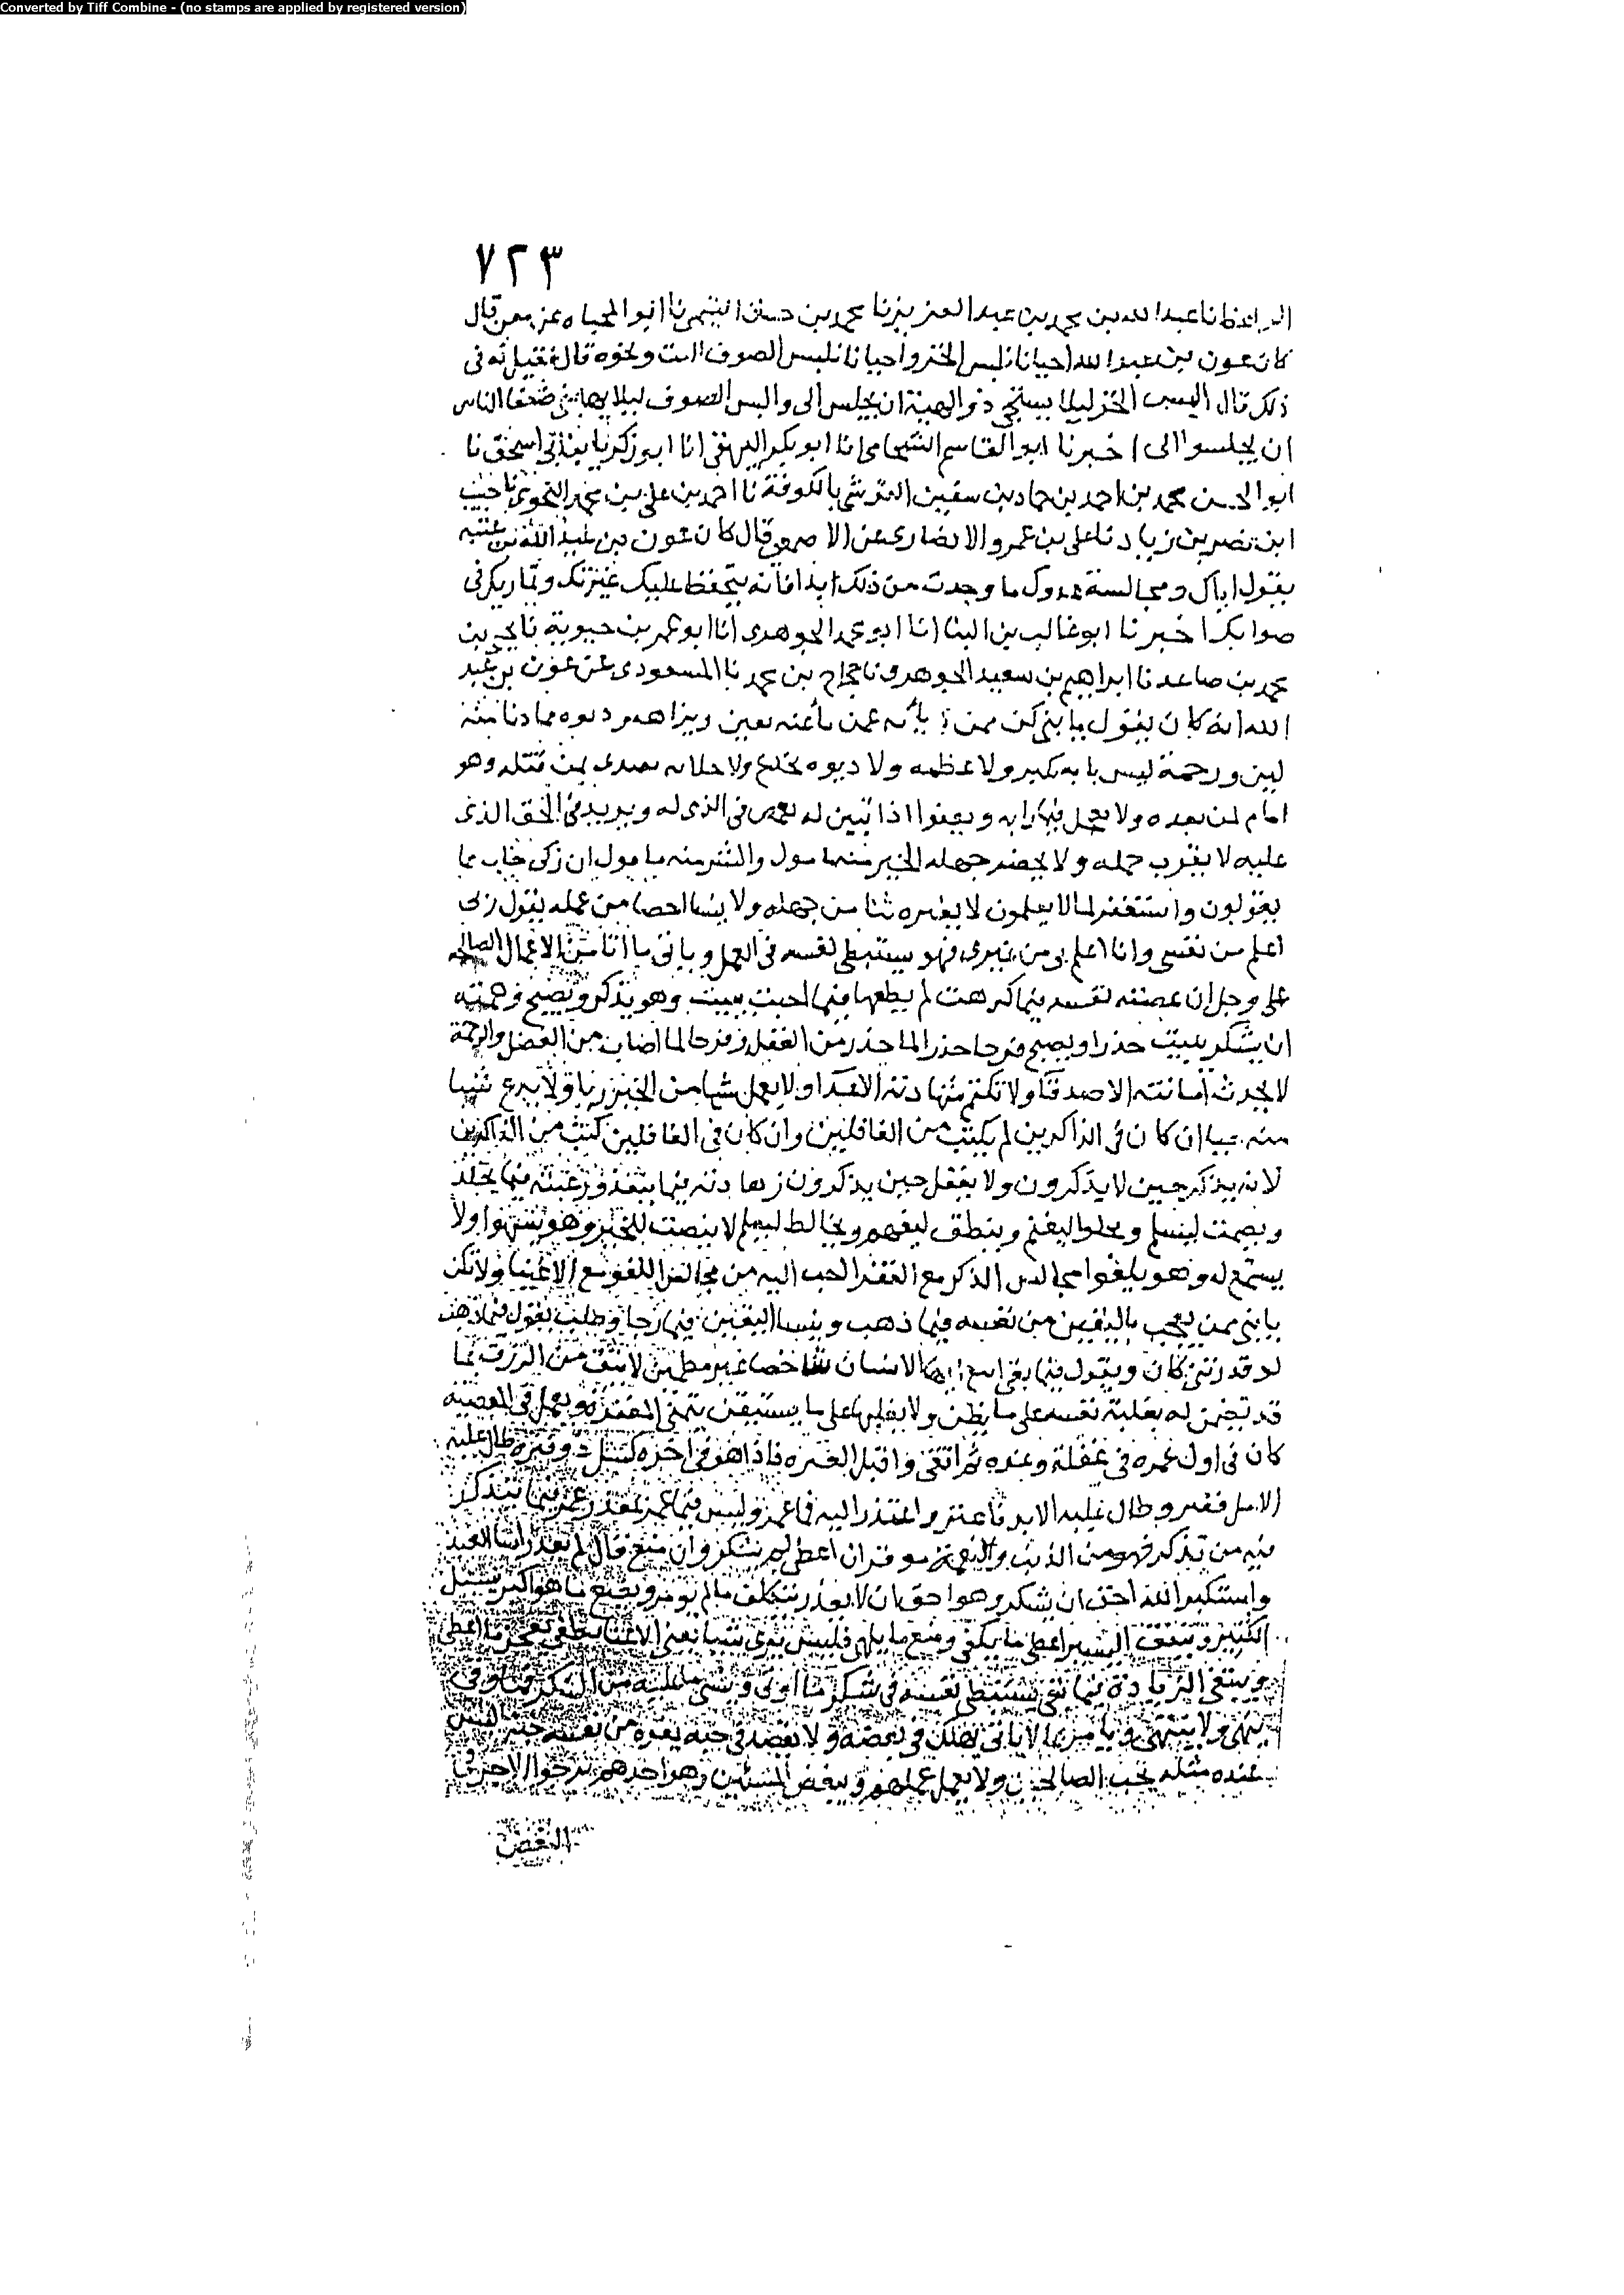 Converted by Tiff Combine - (no stamps are applied by registered version)
٧٢٣
انا عبد الله بن محمد بن عبد العزيز نا محمد بن نا ابو المحياه عن معن قال
كان عون بن عبد الله احيانا يلبس الخز واحيانا يلبس الصوف ونحوه قال فقيل له في
ذلك قال البس الخز ليلا يستحي ذو الهيئة ان يجلس الي والبس الصوف ليلا يهابني ضعفا الناس
ان يجلسوا الي اخبرنا ابو القاسم الشحامي انا ابو بكر البيهقي انا ابو زكريا بن ابي اسحق نا
ابو الحسن محمد بن احمد بن حماد بن سفين القرشي بالكوفة نا احمد بن علي بن محمد النحوي نا حبيب
ابن نصر بن زياد نا علي بن عمرو الانصاري عن الاصمعي قال كان عون بن عبد الله بن عتبه
يقول اياك ومجالسة عدوك ما وجدت من ذلك ابدا فانه يتحفظ عليك عثرتك ويماريك في
صوابك اخبرنا ابو غالب بن البنا انا ابو محمد الجوهري انا ابو عمر بن حيوية نا يحيى بن
محمد بن صاعد نا ابراهيم بن سعيد الجوهري نا حجاج بن محمد نا المسعودي عن عون بن عبد
الله انه كان يقول يا بني كن ممن عمن يقين ونزاهه ودنوه مما دنا منه
لين ورحمة ليس بكبر ولا عظمه ولا دنوه بخدع ولا من قبله وهو
امام لمن بعده ولا يعجل فيما رابه ويعفوا اذا تبين له في الذي له ويزيد في الحق الذي
عليه لا يعزب حلمه ولا يحضر جهله الخير منه مامول والشر منه مامون ان زكي خاف مما
يقولون واستغفر لما لا يعلمون لا يغره ثنا من جهله ولا ينسا احصا من عمله يقول ربي
اعلم من نفسي وانا اعلم بي من غيري فهو يستبطي نفسه في العمل وياتي ما اتا من الاعمال الصالحه
على وجل ان عصته نفسه فيما كرهت لم يطعها فيما احبت يبيت وهو يذكر ويصبح وهمته
ان يشكر يبيت حذرا ويصبح فرحا حذرا لما حذر من الغفله وفرحا لما اصاب من الفضل والرحمة
لا يحدث امانته الاصدقا ولا تكتم شهادته الاعدا ولا يعمل شيا من الخير ريا ولا يدع شيا
منه حيا ان كان في الذاكرين لم يكتب من الغافلين وان كان في الغافلين كتب من الذاكرين
لانه يذكر حين لا يذكرون ولا يغفل حين يذكرون زهادته فيما ينفد ورغبته فيما يخلد
ويصمت ليسلم ويخلوا ليغنم وينطق ليفهم ويخالط ليعلم لا ينصت للخير وهو يسهوا ولا
يستمع له وهو يلغوا مجالس الذكر مع الفقرا احب اليه من مجالس اللغو مع الاغنيا ولا تكن
يا بني ممن يعجب باليقين من نفسه فيما ذهب وينسا اليقين فيما رجا وطلب يقول فيما ذهب
لو قدر شي كان ويقول فيما بقي ابتغ ايها الانسان شاخصا غير مطمئن لا يثق من الرزق بما
قد تضمن له يغلبه نفسه على ما يظن ولا يغلبها على ما يستيقن يتمنى المغفرة ويعمل في المعصية
كان في اول عمره في غفلة وغره ثم ابقي واقيل العثره فاذا هو في اخره كسل ذو فتره طال عليه
الامل ففتر وطال عليه الامد فاغتر واعتذر اليه فيما عمر وليس فيما عمر بمعذر عمر فيما يتذكر
فيه من تذكر فهو من الذنب والنعمة موقر ان اعطي لم يشكر وان منع قال لم يقدر اسا العبد
واستكبر الله احق ان يشكر وهو احق ان لا يعذر يتكلف ما لم يومر ويضيع ما هو اكبر يسل
الكثير وينفق اليسير اعطي ما يكفي ومنع ما يلهي فليس يرى شيا يغني الا غنا يطغي يعجز ما اعطي
ويبتغي الزيادة فيما بقي يستبطي نفسه في شكر ما اوتي وينسى ما عليه من الشكر فيما وفي
ينهى ولا ينتهي ويامر بما لا ياتي يهلك في بغضه ولا يقصد في حبه يغره من نفسه حبه ما ليس
عنده مثله يحب الصالحين ولا يعمل عملهم ويبغض المسيئين وهو احدهم يرجوا الاجر في
البغض